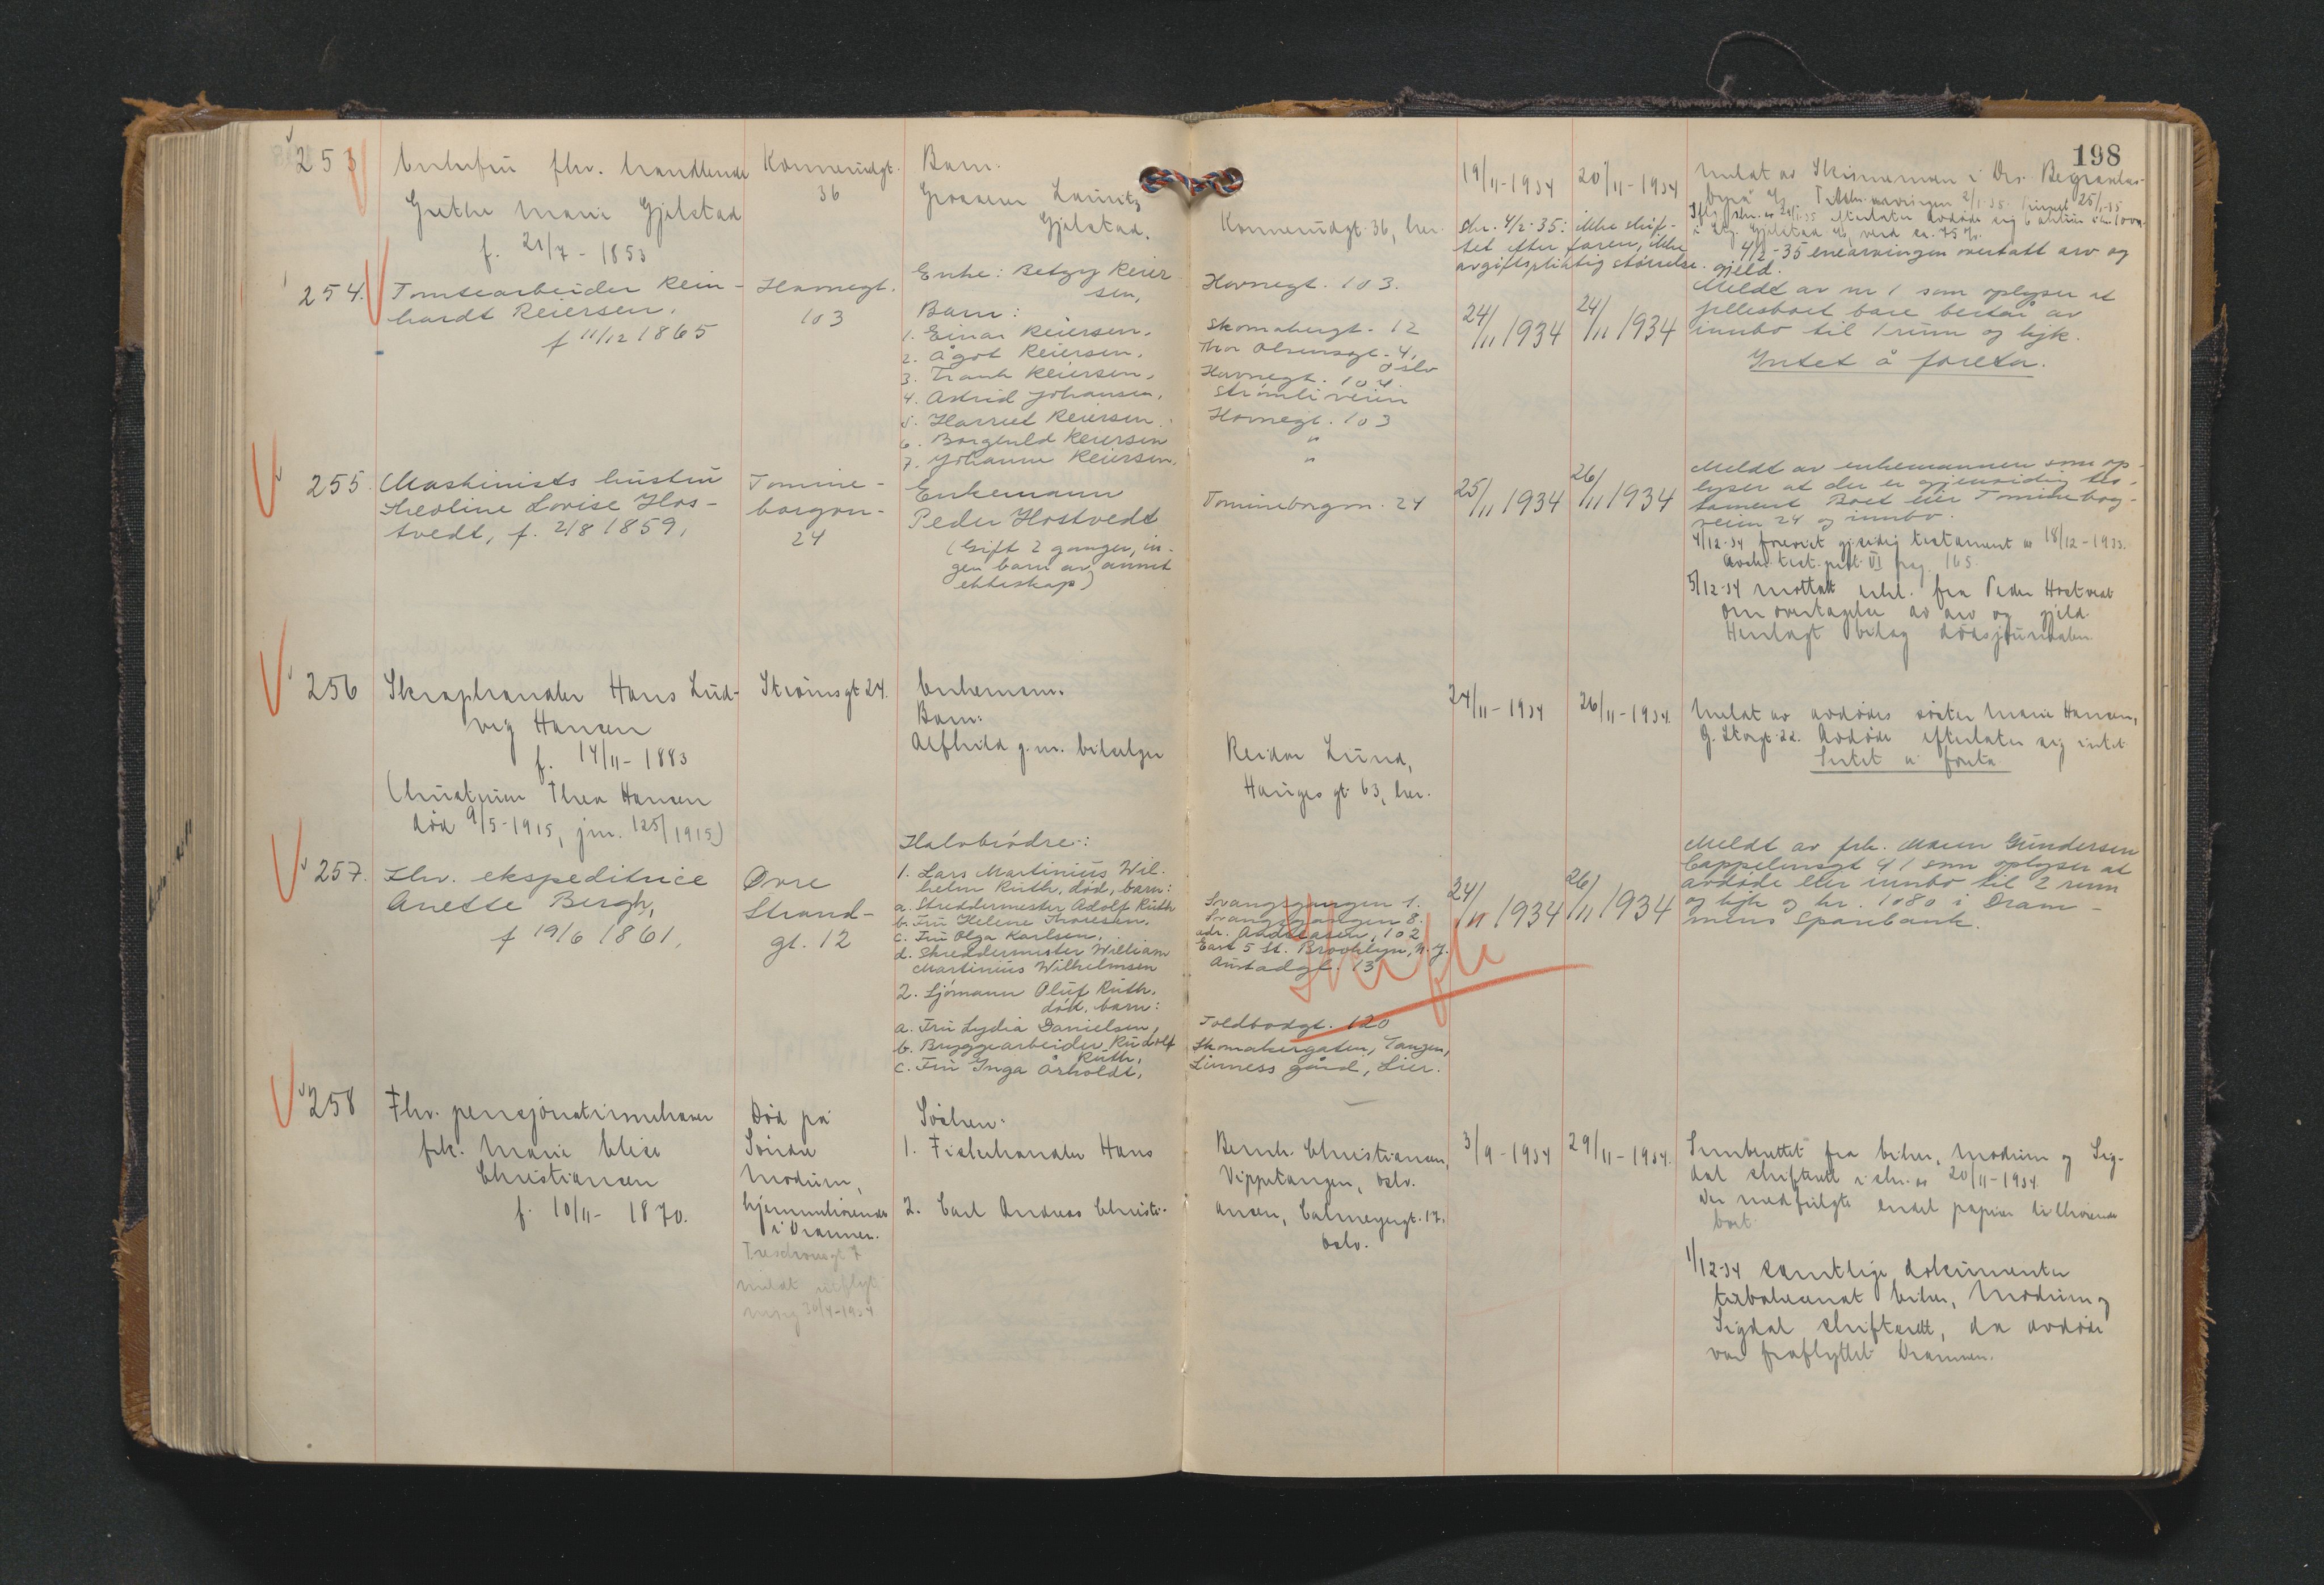 198
253
Enkefru fhv. handlende
Grethe Marie Gjelstad
f. 21/7 - 1853
Konnerudgt.
36
Barn:
Grosserer Lauritz
Gjelstad.
Konnerudgt. 36, her.
19/11-1934
20/11-1934
skr. 4/2-35: ikke skif-
tet efter faren, ikke
avgiftspliktig størrelse.
Meldt av Skinnemoen i Drs. Begravelses-
byrå
4/2-35 enearvingen overtatt arv og
gjeld.
254.
Tomtearbeider Rein-
hardt Reiersen.
f 11/12 1865
Havnegt.
103
Enke: Betzy Reier-
sen,
Barn:
1. Einar Reiersen.
2. Ågot Reiersen.
3. Frank Reiersen.
4. Astrid Johansen.
5. Harriet Reiersen.
6. Borghild Reiersen
7. Johanne Reiersen.
Havnegt. 103.
Skomakergt. 12
Thor Olsensgt. 4,
Oslo
Havnegt. 104.
Strømliveien
Havnegt. 103
"
"
24/11 1934
24/11 1934
Meldt av nr 1 som oplyser at
fellesboet bare består av
innbo til 1 rum og kjk.
Intet å foreta.
255.
Maskinists hustru
Theoline Lovise Hos-
tvedt, f. 2/8 1859,
Tomine-
borgvn-
24
Enkemann
Peder Hostvedt
(Gift 2 ganger, in-
gen barn av annet
ekteskap)
Tomineborgvn. 24
25/11 1934
26/11 1934
Meldt av enkemannen som op-
lyser at der er gjensidig tes-
tament. Boet eier Tomineborg-
veien 24 og innbo.
4/12-34 forevist gjensidig testament av 18/12-1933.
test. prot. VI pag. 165.
5/12-34 mottatt erkl. fra Peder Hostvedt
om overtagelse av arv og gjeld.
Henlagt bilag dødsjournalen.
256
Skraphandler Hans Lud-
vig Hansen
f. 14/11-1883
(hustruen Thea Hansen
død 9/5-1915, jnr. 125/1915)
Strømsgt 24.
Enkemann.
Barn:
Alfhild g.m. bileier
Reidar Lund,
Hauges gt 63, her.
24/11-1934
26/11-1934.
Meldt av avdødes søster Marie Hansen,
G. Storgt. 22. Avdøde efterlater sig intet.
Intet å foreta
257.
Fhv. ekspeditrice
Anette Bergh,
f 19/6 1861,
Øvre
Strand-
gt. 12
Halvbrødre:
1. Lars Martinius Wil-
helm Ruth, død, barn:
a. Skreddermester Adolf Ruth
b. Fru Helene Thoresen.
c. Fru Olga Karlsen.
d. Skreddermester William
Martinius Wilhelmsen
2. Sjømann Oluf Ruth.
død, barn:
a. Fru Lydia Danielsen,
b. Bryggearbeider Rudolf
Ruth,
c. Fru Inga Arholdt,
Svangsgangen 1.
Svangsgangen 8.
adr. Andreasen, 102
East 5 St. Brooklyn, N.Y.
Austadgt. 13
Toldbodgt. 120
Skomakergaten, Tangen,
Linness gård, Lier.
Skifte
24/11 1934
26/11 1934
Meldt av frk. Maren Gundersen
Cappelensgt 41 som oplyser at
avdøde eier innbo til 2 rum
og kjk og kr. 1080 i Dram-
mens Sparebank.
258
Fhv. pensjonatinnehaver
frk. Marie Elise
Christiansen
f. 10/11- 1870.
Død på
Søndre
Modum,
hjemmehørende
i Drammen.
Treschowsgt 7
meldt utflyt.
30/4-1934
Søsken:
1. Fiskehandler Hans
2. Carl Andreas Christi-
Bernh. Christiansen,
Vippetangen, Oslo.
ansen, Calmeyergt. 17.
Oslo.
3/9-1934
29/11-1934.
Innberettet fra Eiker, Modum og Sig-
dal skifterett i skr. av 20/11-1934.
Der medfulgte endel papirer tilhørende
boet.
1/12-34 samtlige dokumenter
tilbakesendt Eiker, Modum og
Sigdal skifterett, da avdøde
var fraflyttet Drammen.